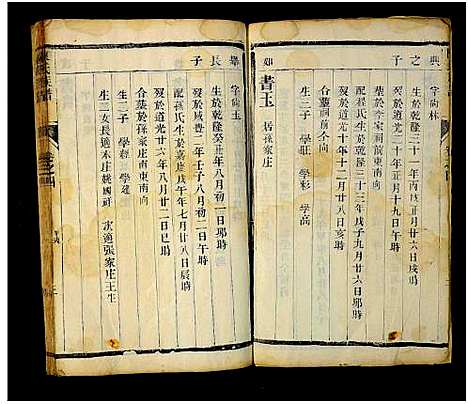 興之子
字尚林
生於乾隆三十一年丙戌正月廿六日丑時
歿於道光二十年正月十九日午時
葬於李家祠前東南向
配程氏生於乾隆三十三年戊子九月廿六日卯時
歿於道光十年十二月廿八日亥時
合墓祠前仝向
生二子 學旺 學彩 學高
郊 書玉 居孫家庄
舉長子
字尚玉
生於乾隆癸丑年八月初二日卯時
歿於咸豐二年壬子八月初二日午時
配孫氏生於嘉慶戊午年七月廿八日辰時
歿於道光廿六年八月廿二日巳時
合墓於孫家庄東南向
生二子 學經 學進
生二女長適朱庄桃國祥 次適張家庄王生
氏族譜
卷之四